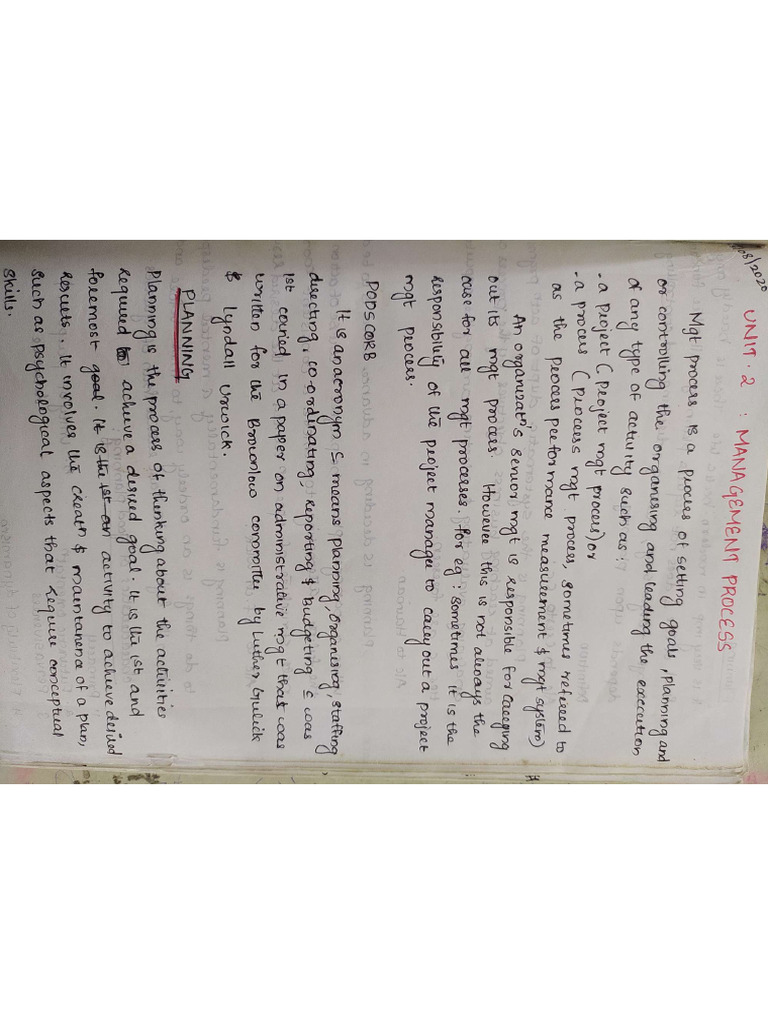 08/2020
UNIT-2 : MANAGEMENT PROCESS
Mgt process is a process of setting goals, planning and
or controlling the organising and leading the execution
of any type of activity such as:
- a project (project mgt process) or
- a process (process mgt process, sometimes refered to
as the process performance measurement & mgt system)
An organizatn's senior mgt is responsible for carrying
out its mgt process. However this is not always the
case for all mgt processes. For eg: sometimes it is the
responsibility of the project manager to carry out a project
mgt process.
PODSCORB
It is an acronym & means planning, organising, staffing
directing, co-ordinating, reporting & budgeting & was
1st coined in a paper on administrative mgt that was
written for the Brownlow committee by Luther Gulick
& Lyndall Urwick.
PLANNING
Planning is the process of thinking about the activities
required to achieve a desired goal. It is the 1st and
foremost goal. It is the 1st an activity to achieve desired
results. It involves the creatn & maintanence of a plan,
such as psychological aspects that require conceptual
skills.